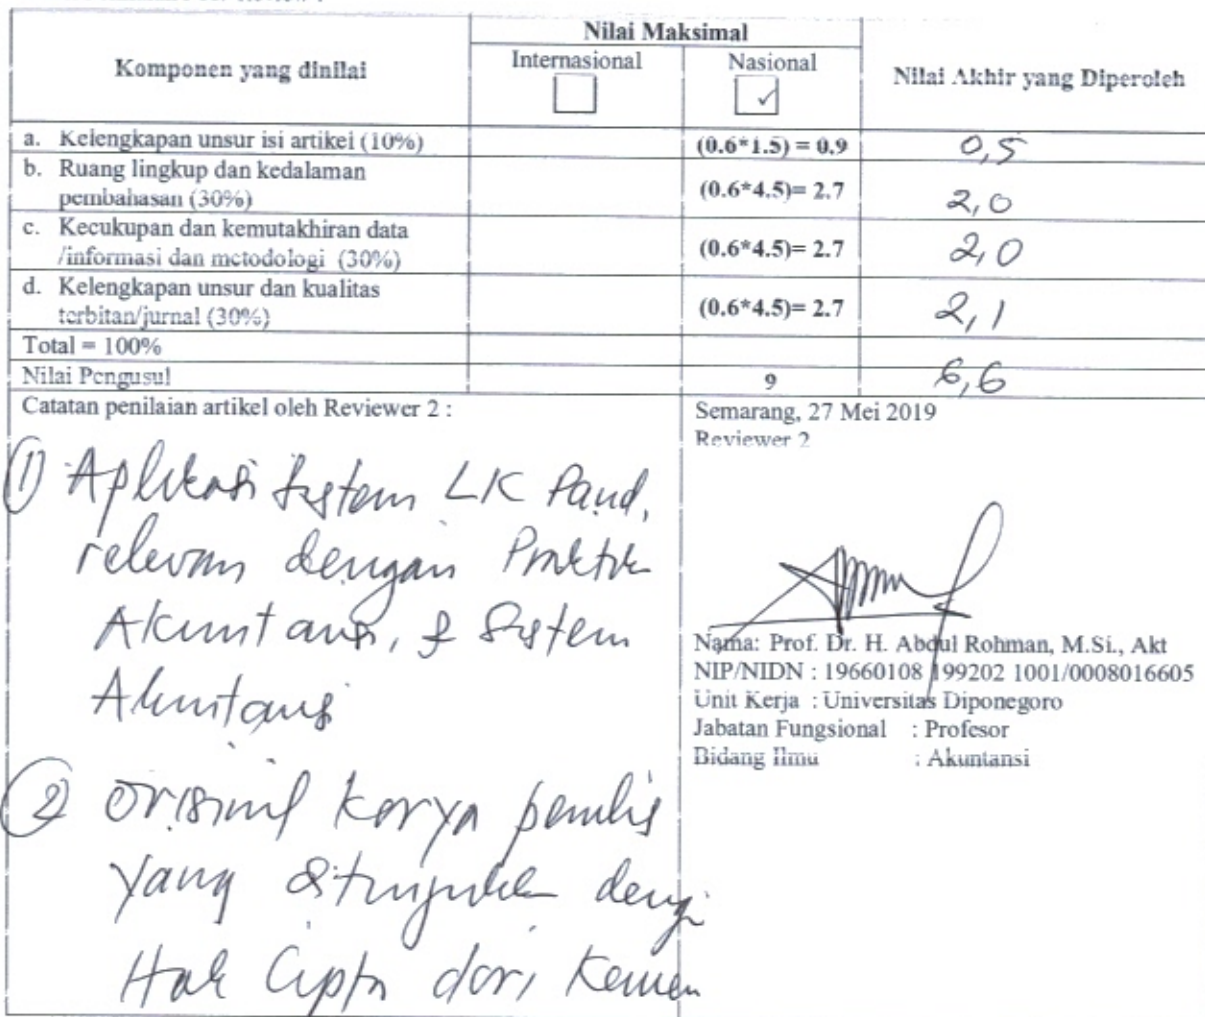 Nilai Maksimal
Komponen yang dinilai
Internasional
Nasional
✓
Nilai Akhir yang Diperoleh
a. Kelengkapan unsur isi artikel (10%)
(0.6*1.5) = 0.9
0,5
b. Ruang lingkup dan kedalaman
pembahasan (30%)
(0.6*4.5)= 2.7
2,0
c. Kecukupan dan kemutakhiran data
/informasi dan metodologi (30%)
(0.6*4.5)= 2.7
2,0
d. Kelengkapan unsur dan kualitas
terbitan/jurnal (30%)
(0.6*4.5)= 2.7
2,1
Total = 100%
Nilai Pengusul
9
6,6
Catatan penilaian artikel oleh Reviewer 2 :
① Aplikasi System LK Paud,
relevan dengan Praktik
Akuntansi, & Sistem
Akuntansi
② Orisinil Karya penulis
yang ditunjukk dengan
Hak Cipta dari Kemen
Semarang, 27 Mei 2019
Reviewer 2
Nama: Prof. Dr. H. Abdul Rohman, M.Si., Akt
NIP/NIDN : 19660108 199202 1001/0008016605
Unit Kerja : Universitas Diponegoro
Jabatan Fungsional : Profesor
Bidang Ilmu : Akuntansi